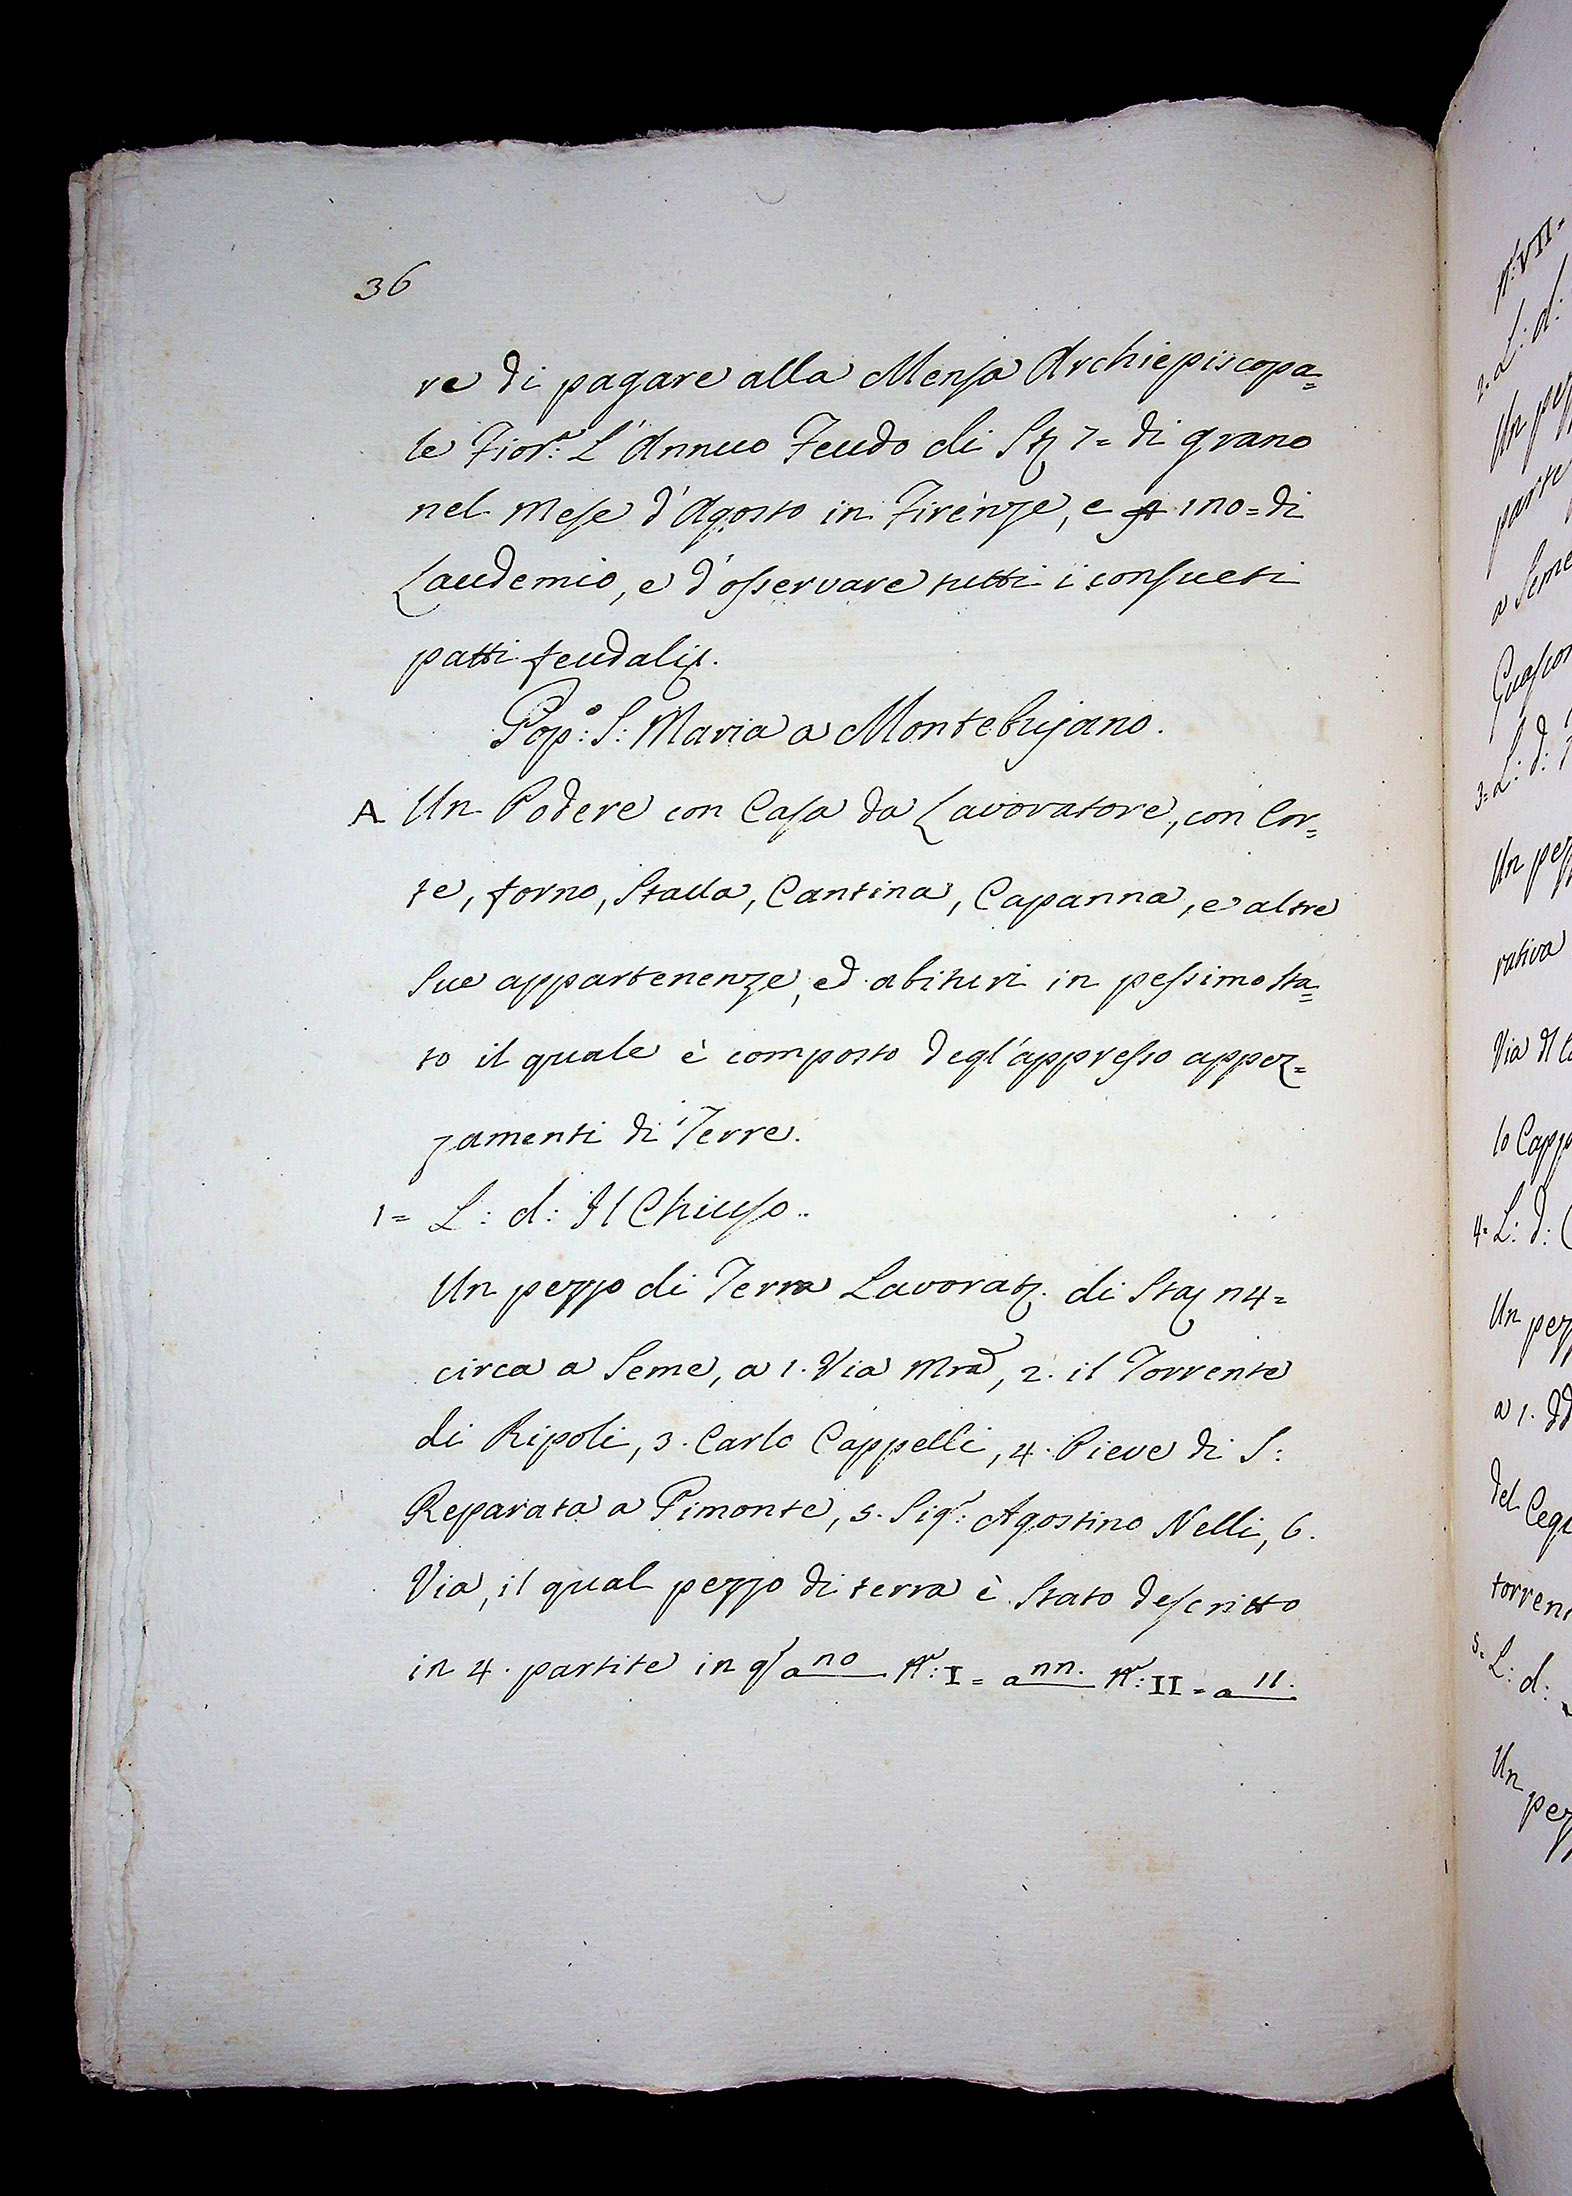 36
re di pagare alla Mensa Archiepiscopa=
le Fior.ª L'Annuo Feudo di St 7= di grano
nel Mese d'Agosto in Firenze, e 110= di
Laudemio, e d'osservare tutti i consueti
patti feudali.
Pop.º: S: Maria a Montebujano.
A Un Podere con Casa da Lavoratore, con Cor=
te, forno, Stalla, Cantina, Capanna, e altre
Sue appartenenze, ed abituri in pessimo sta=
to il quale è composto degl'appresso appez=
zamenti di Terre.
1= L: d: Il Chiuso..
Un pezzo di Terra Lavorat. di Sta 14=
circa a Seme, a 1. Via Mra, 2. il Torrente
di Ripoli, 3. Carlo Cappelli, 4. Pieve di S:
Reparata a Pimonte, 5. Sigr: Agostino Nelli, 6.
Via, il qual pezzo di terra è Stato descritto
in 4. partite in I= a II= a 11.
2. L: d:
Un pez
parte
a Seme
Guascon
3= L: d:
Un pez
rativa
Via
lo Capp
4= L: d:
Un pez
a 1.
del
torren
5= L: d:
Un
pez